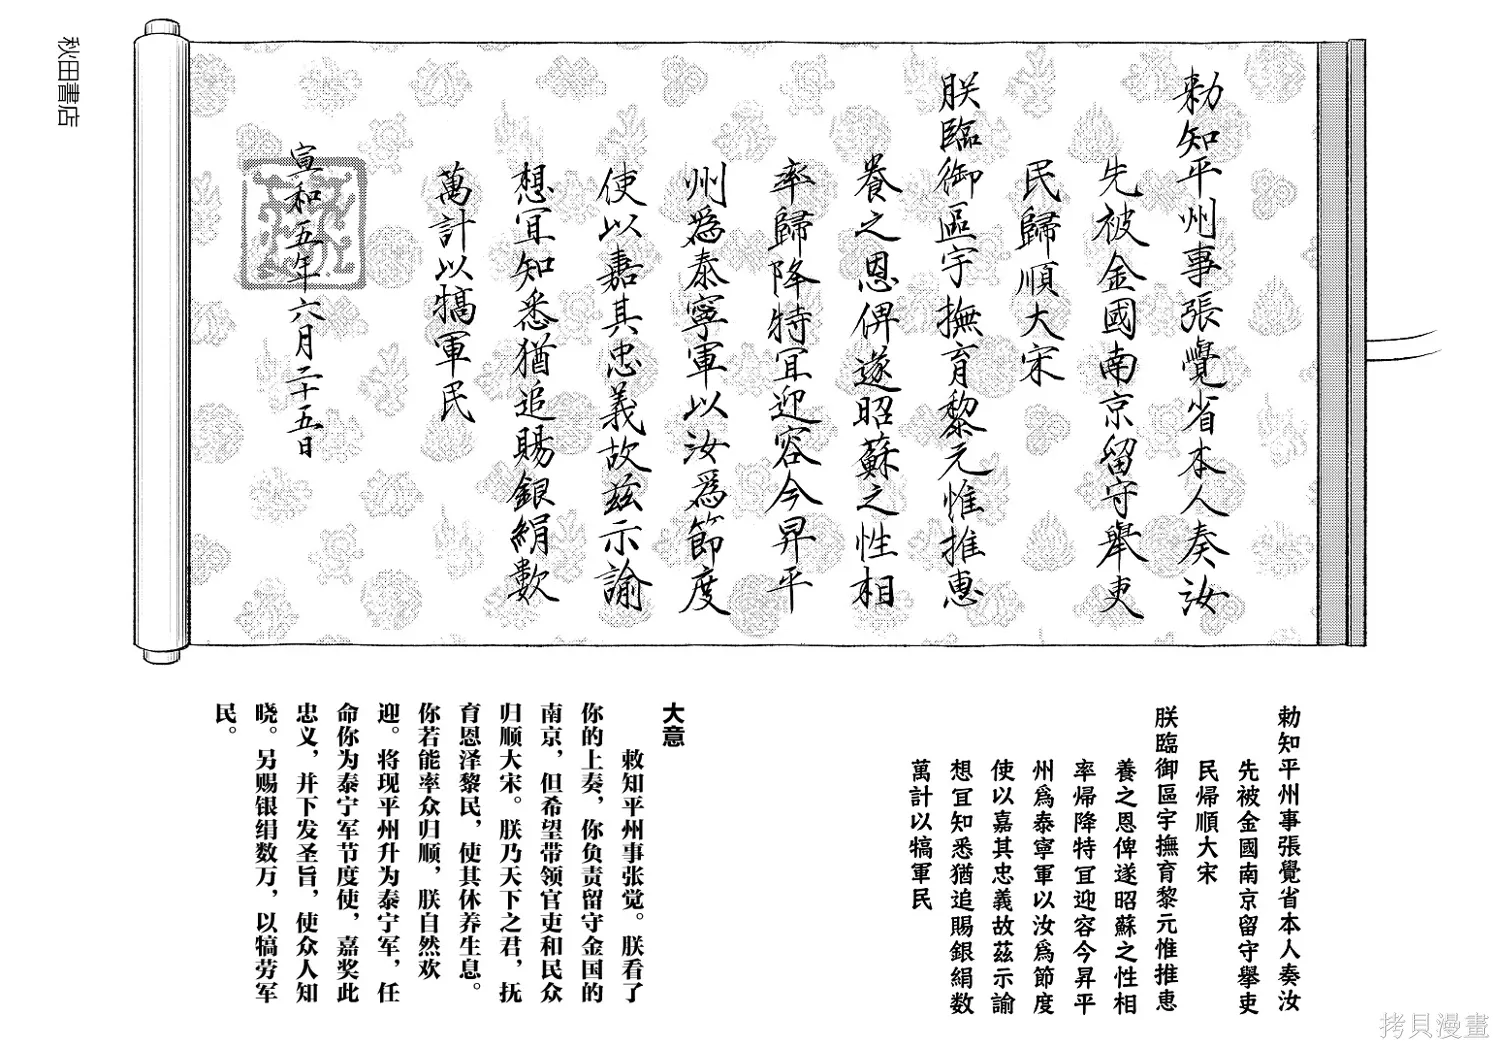 勅知平州事張覺省本人奏汝
先被金國南京留守舉吏
民歸順大宋
朕臨御區宇撫育黎元惟推惠
養之恩俾遂昭蘇之性相
率歸降特宜迎容今昇平
州爲泰寧軍以汝爲節度
使以嘉其忠義故茲示諭
想宜知悉猶追賜銀絹數
萬計以犒軍民
宣和五年六月二十五日
秋田書店
勅知平州事張覺省本人奏汝
先被金國南京留守舉吏
民帰順大宋
朕臨御區宇撫育黎元惟推惠
養之恩俾遂昭蘇之性相
率帰降特宜迎容今昇平
州爲泰寧軍以汝爲節度
使以嘉其忠義故茲示諭
想宜知悉猶追賜銀絹数
萬計以犒軍民
大意
敕知平州事张觉。朕看了
你的上奏，你负责留守金国的
南京，但希望带领官吏和民众
归顺大宋。朕乃天下之君，抚
育恩泽黎民，使其休养生息。
你若能率众归顺，朕自然欢
迎。将现平州升为泰宁军，任
命你为泰宁军节度使，嘉奖此
忠义，并下发圣旨，使众人知
晓。另赐银绢数万，以犒劳军
民。
拷貝漫畫